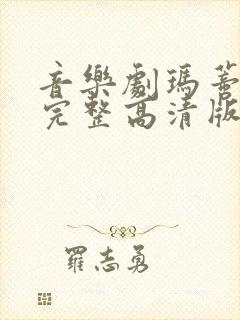 音樂劇瑪蒂
完整高清版
羅志勇